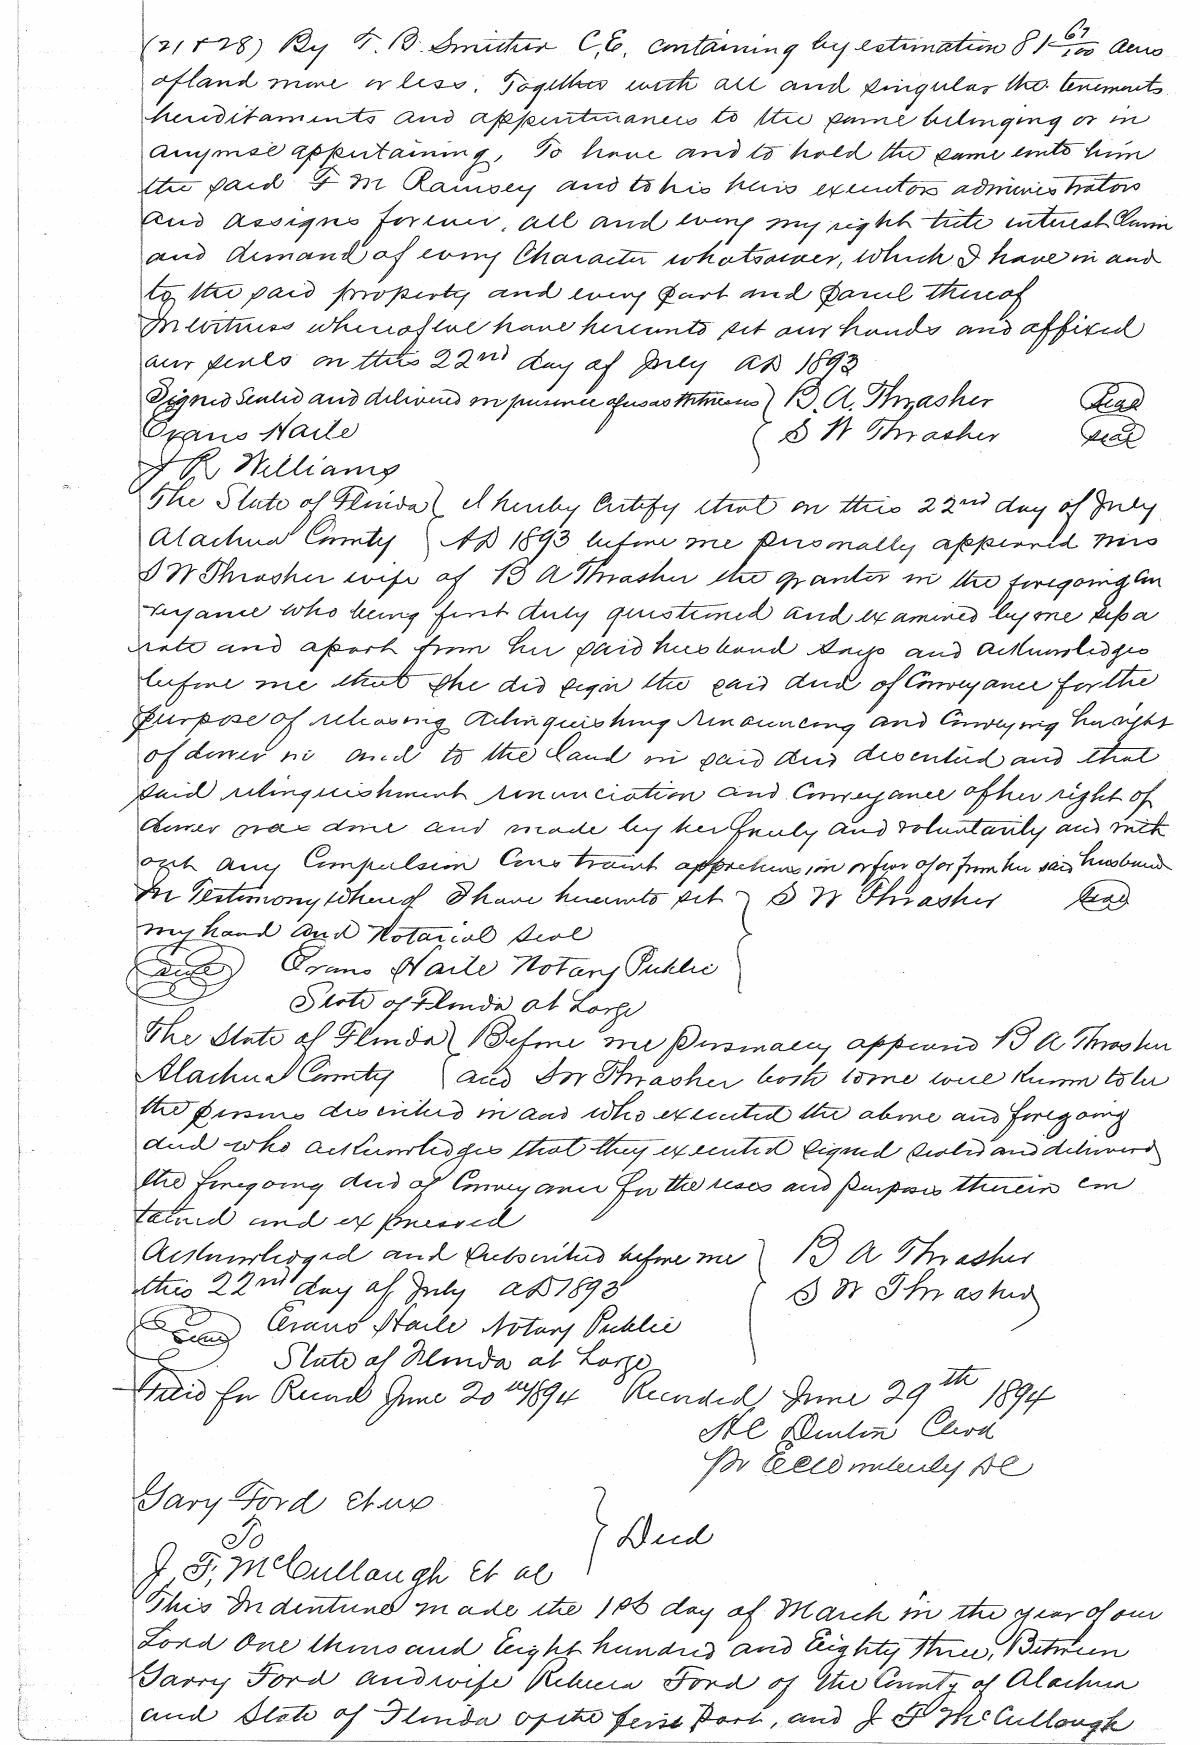 (21 & 28) By T. B. Smither C.E. containing by estimation 81 67/100 acres
of land more or less. Together with all and singular the tenements
hereditaments and appurtenances to the same belonging or in
anywise appertaining, To have and to hold the same unto him
the said F M Ramsey and to his heirs executors administrators
and assigns forever, all and every my right title interest Claim
and demand of every Character whatsoever, which I have in and
to the said property and every part and parcel thereof
In witness whereof we have hereunto set our hands and affixed
our seals on this 22nd day of July AD 1893
Signed Sealed and delivered in presence of us as Witnesses } B. A. Thrasher Seal
Evans Haile { S W Thrasher seal
J R Williams
The State of Florida { I hereby Certify that on this 22nd day of July
Alachua County { AD 1893 before me personally appeared Mrs
S W Thrasher wife of B A Thrasher the grantor in the foregoing Con
veyance who being first duly questioned and examined by me sepa
rate and apart from her said husband says and acknowledges
before me that she did sign the said deed of Conveyance for the
purpose of releasing relinquishing renouncing and Conveying her right
of dower in and to the land in said deed described and that
said relinquishment renunciation and Conveyance of her right of
dower was done and made by her freely and voluntarily and with
out any Compulsion Constraint apprehension or fear of or from her said husband
In Testimony whereof I have hereunto set } S W Thrasher Seal
my hand and Notarial Seal
seal Evans Haile Notary Public
State of Florida at Large
The State of Florida { Before me personally appeared B A Thrasher
Alachua County { and S W Thrasher both to me well known to be
the persons described in and who executed the above and foregoing
deed who acknowledges that they executed signed sealed and delivered
the foregoing deed of Conveyance for the uses and purposes therein con
tained and expressed
Acknowledged and subscribed before me } B A Thrasher
this 22nd day of July AD 1893 { S W Thrasher
Seal Evans Haile Notary Public
State of Florida at Large
Filed for Record June 20th 1894 Recorded June 29th 1894
Denton Clerk
DC
Gary Ford et ux
To } Deed
J. F. McCullough Et al
This Indenture made the 1st day of March in the year of our
Lord One thousand Eight hundred and Eighty three, Between
Garry Ford and wife Rebecca Ford of the County of Alachua
and State of Florida of the first Part, and J F McCullough